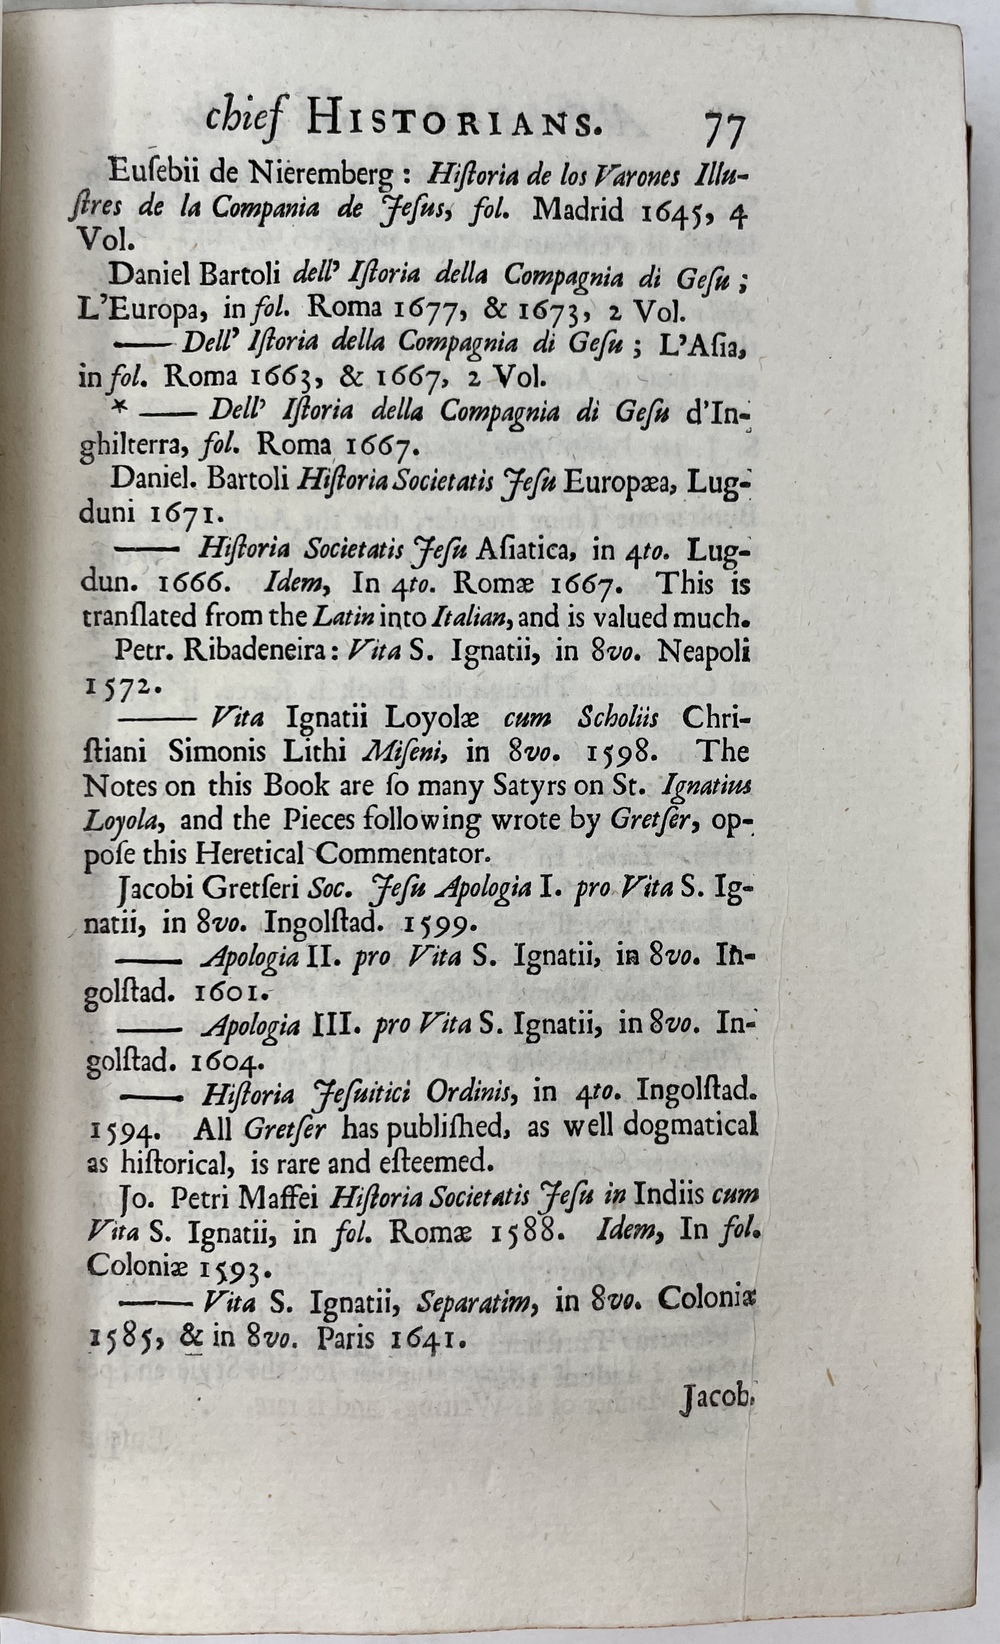 chief HISTORIANS. 77
Euſebii de Nieremberg : Hiſtoria de los Varones Illu-
ſtres de la Compania de Jeſus, fol. Madrid 1645, 4
Vol.
Daniel Bartoli dell' Iſtoria della Compagnia di Geſu ;
L'Europa, in fol. Roma 1677, & 1673, 2 Vol.
—— Dell' Iſtoria della Compagnia di Geſu ; L'Aſia,
in fol. Roma 1663, & 1667, 2 Vol.
* —— Dell' Iſtoria della Compagnia di Geſu d'In-
ghilterra, fol. Roma 1667.
Daniel. Bartoli Hiſtoria Societatis Jeſu Europæa, Lug-
duni 1671.
—— Hiſtoria Societatis Jeſu Aſiatica, in 4to. Lug-
dun. 1666. Idem, In 4to. Romæ 1667. This is
tranſlated from the Latin into Italian, and is valued much.
Petr. Ribadeneira: Vita S. Ignatii, in 8vo. Neapoli
1572.
—— Vita Ignatii Loyolæ cum Scholiis Chri-
ſtiani Simonis Lithi Miſeni, in 8vo. 1598. The
Notes on this Book are ſo many Satyrs on St. Ignatius
Loyola, and the Pieces following wrote by Gretſer, op-
poſe this Heretical Commentator.
Jacobi Gretſeri Soc. Jeſu Apologia I. pro Vita S. Ig-
natii, in 8vo. Ingolſtad. 1599.
—— Apologia II. pro Vita S. Ignatii, in 8vo. In-
golſtad. 1601.
—— Apologia III. pro Vita S. Ignatii, in 8vo. In-
golſtad. 1604.
—— Hiſtoria Jeſuitici Ordinis, in 4to. Ingolſtad.
1594. All Gretſer has publiſhed, as well dogmatical
as hiſtorical, is rare and eſteemed.
Jo. Petri Maffei Hiſtoria Societatis Jeſu in Indiis cum
Vita S. Ignatii, in fol. Romæ 1588. Idem, In fol.
Coloniæ 1593.
—— Vita S. Ignatii, Separatim, in 8vo. Coloniæ
1585, & in 8vo. Paris 1641.
Jacob.